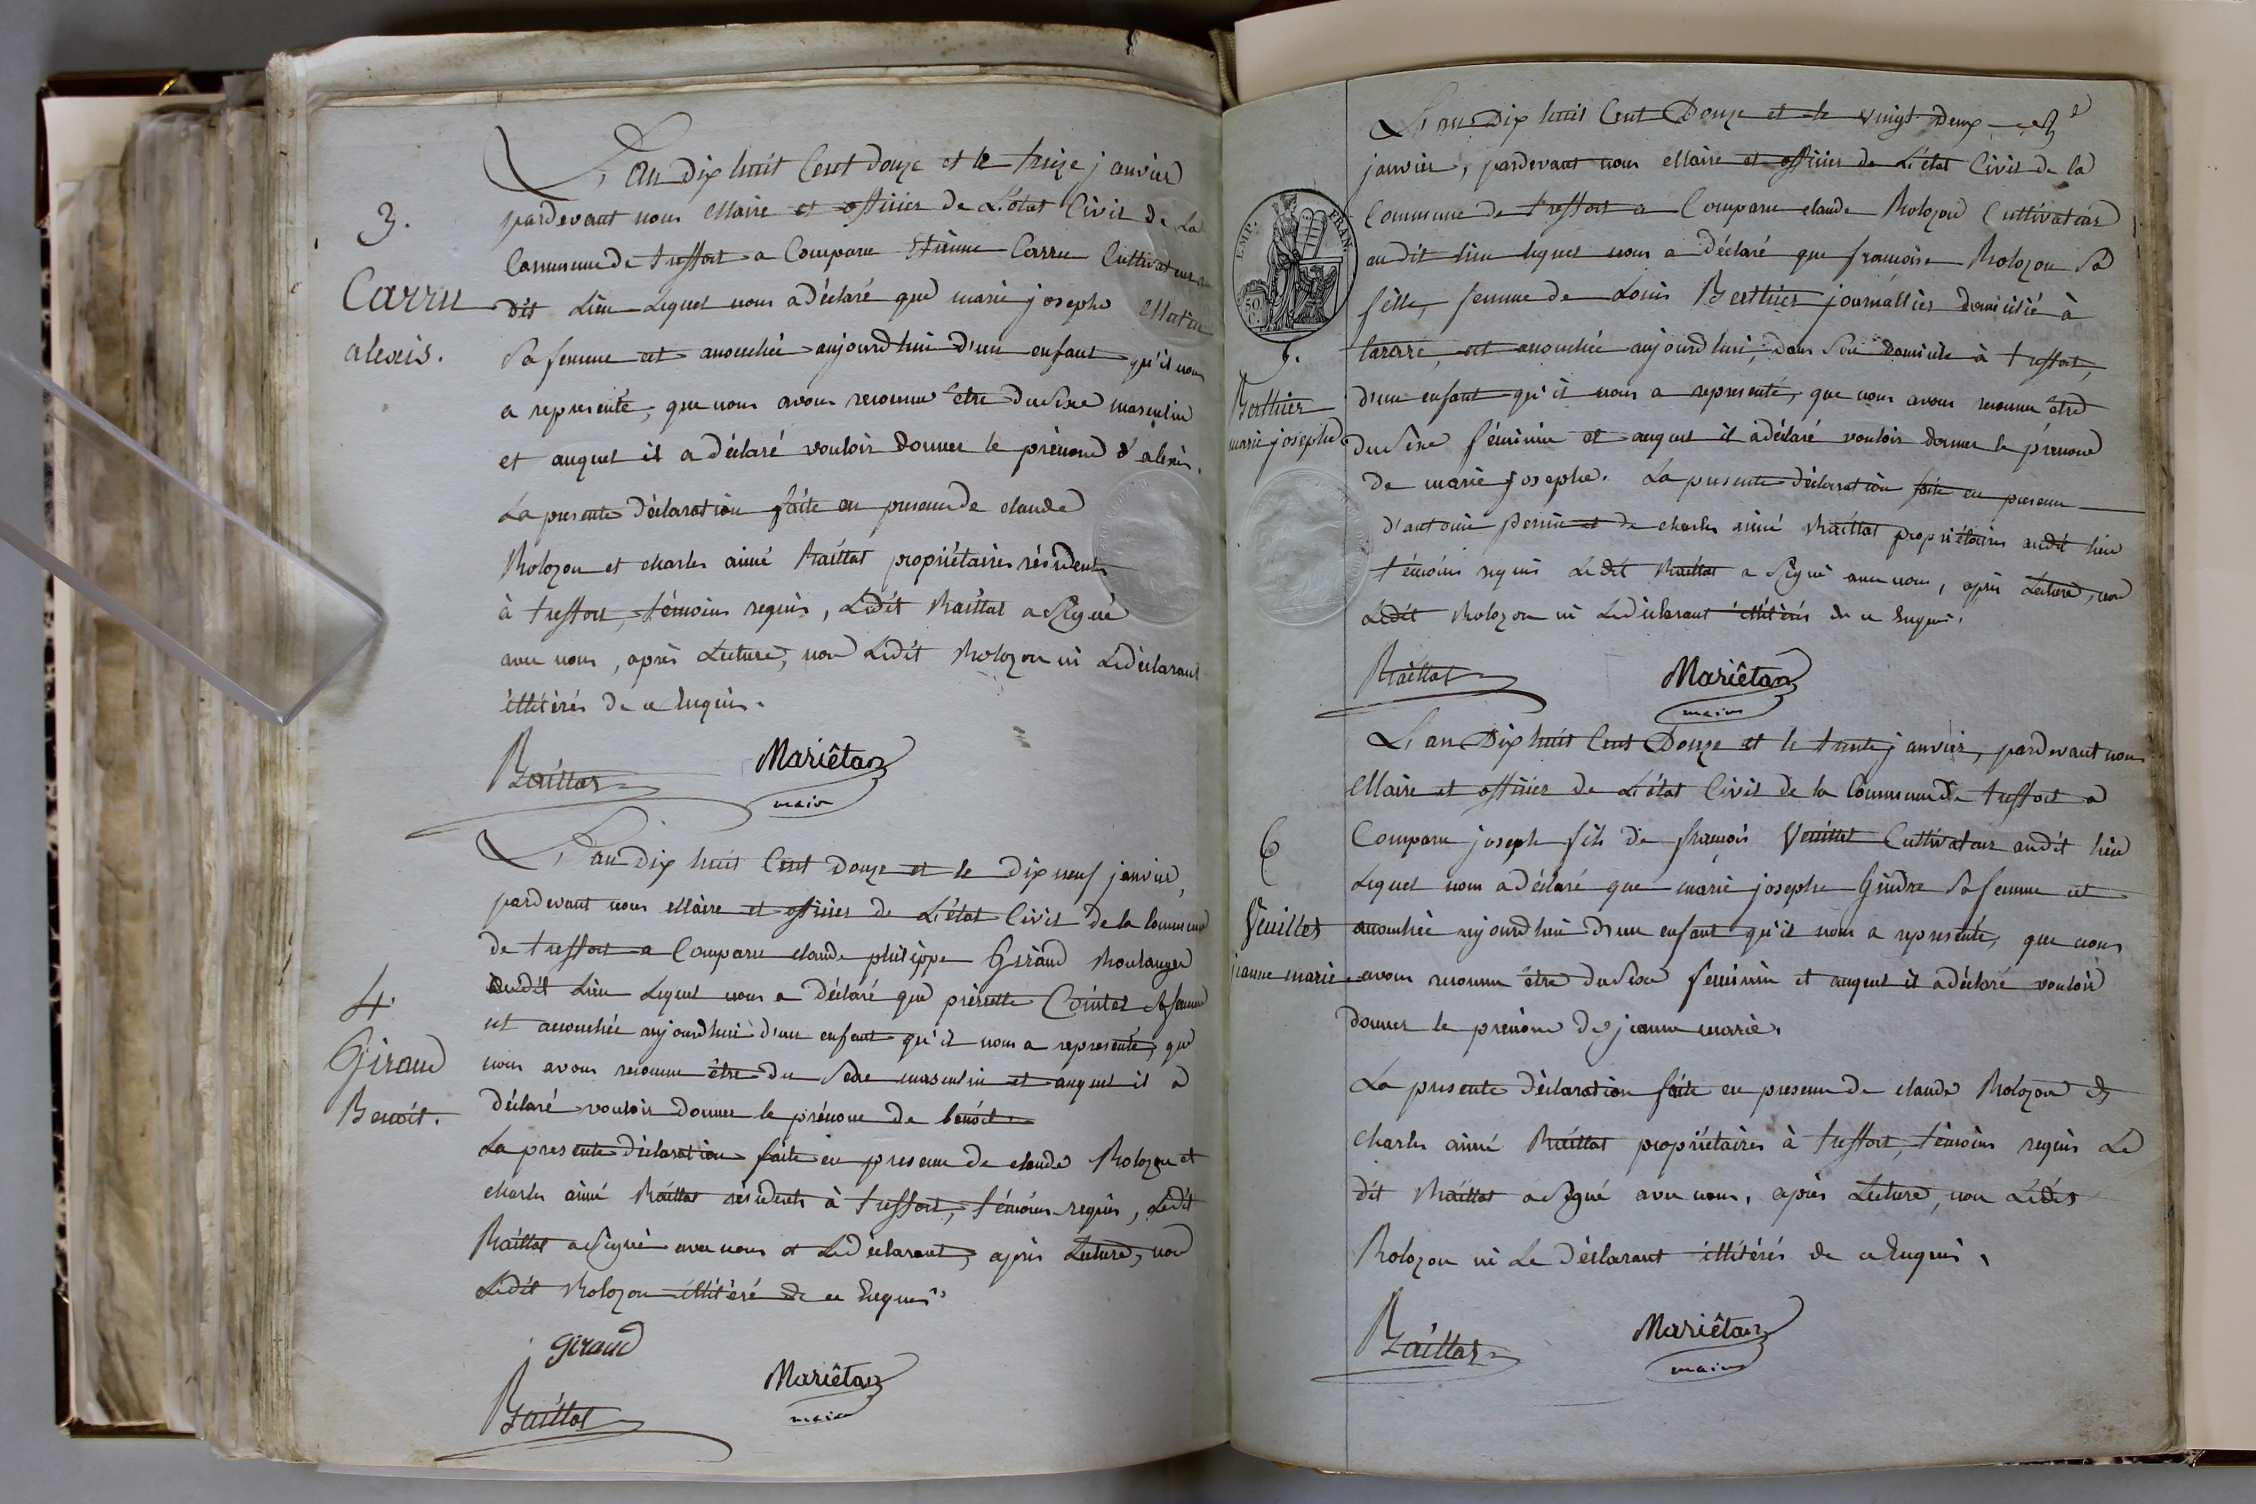 3.
Carru
alexis.
L'an Dix huit Cent douze et le treize janvier
pardevant nous Maire et officier de L'état Civil de La
Commune de treffort a Comparu Etienne Carru Cultivateur au
dit Lieu Lequel nous a déclaré que marie josephe
Sa femme est accouchée aujourdhui d'un enfant qu'il nous
a représenté, que nous avons reconnu être du Sexe masculin
et auquel il a déclaré vouloir donner le prénom d'alexis.
La presente déclaration faite en presence de claude
Rolozon et charles aimé Raillat propriétaires résidents
à treffort, témoins requis, Ledit Raillat a Signé
avec nous, après Lecture, non Ledit Rolozon ni Le déclarant
illitérés de ce Enquis.
Raillat
Mariêtan
maire
4.
Giraud
Benoit.
L'an Dix huit Cent douze et le dix neuf janvier,
pardevant nous Maire et officier de L'état Civil de la Commune
de treffort a Comparu claude philippe Giraud Boulanger
audit Lieu Lequel nous a déclaré que pierrette Cointet Sa femme
est accouchée aujourdhui d'un enfant qu'il nous a représenté, que
nous avons reconnu être du Sexe masculin et auquel il a
déclaré vouloir donner le prénom de benoit
La presente déclaration faite en presence de claude Rolozon et
charles aimé Raillat résidents à treffort, témoins requis, Ledit
Raillat a Signé avec nous et Le déclarant, après Lecture, non
Ledit Rolozon illitéré de ce Enquis
Giraud
Raillat
Mariêtan
maire
EMP. FRAN.
50 C.
5.
Berthier
marie josephe
L'an Dix huit Cent Douze et le vingt deux
janvier, pardevant nous Maire et officier de L'état Civil de la
Commune de treffort a Comparu claude Rolozon Cultivateur
audit lieu lequel nous a déclaré que francoise Rolozon Sa
fille, femme de Louis Berthier journallier domicilié à
tarare, est accouchée aujourdhui, dans Son domicile à treffort,
d'un enfant qu'il nous a représenté, que nous avons reconnu être
du Sexe féminin et auquel il a déclaré vouloir donner le prénom
de marie josephe. La presente déclaration faite en presence
d'antoine perrin et de charles aimé Raillat propriétaires audit lieu
témoins requis Ledit Raillat a Signé avec nous, après Lecture, non
Ledit Rolozon ni Le déclarant illitérés de ce Enquis.
Raillat
Mariêtan
maire
6
Veuillet
jeanne marie
L'an Dix huit Cent Douze et le trente janvier, pardevant nous
Maire et officier de L'état Civil de la Commune de treffort a
Comparu joseph fils de francois Veuillet Cultivateur audit lieu
Lequel nous a déclaré que marie josephe Gindre Sa femme est
accouchée aujourdhui d'un enfant qu'il nous a représenté, que nous
avons reconnu être du Sexe feminin et auquel il a déclaré vouloir
donner le prénom de jeanne marie.
La presente déclaration faite en presence de claude Rolozon et
Charles aimé Raillat propriétaires à treffort, témoins requis Le
dit Raillat a Signé avec nous, après Lecture, non Ledit
Rolozon ni Le déclarant illitérés de ce Enquis.
Raillat
Mariêtan
maire